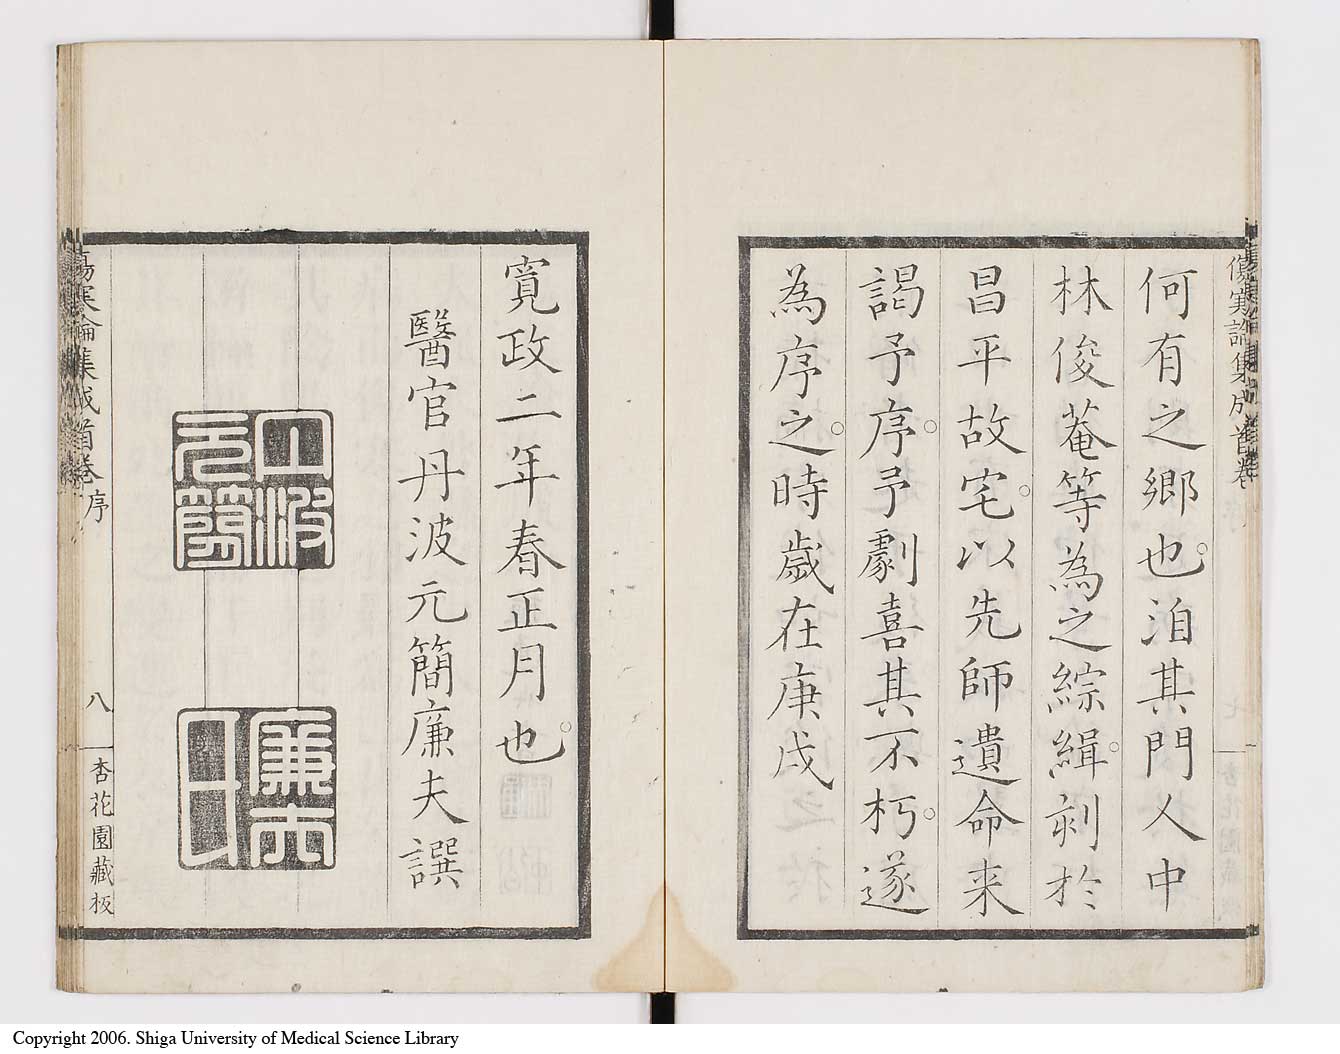 傷寒論集成首卷
何有之鄉也。洎其門人中
林俊菴等為之綜緝。剞於
昌平故宅。以先師遺命来
謁予序。予劇喜其不朽。遂
為序之。時歲在庚戌
寬政二年春正月也。
醫官丹波元簡廉夫譔
丹波
元簡
廉夫
氏
傷寒論集成首卷 序
八
杏花園藏板
Copyright 2006. Shiga University of Medical Science Library